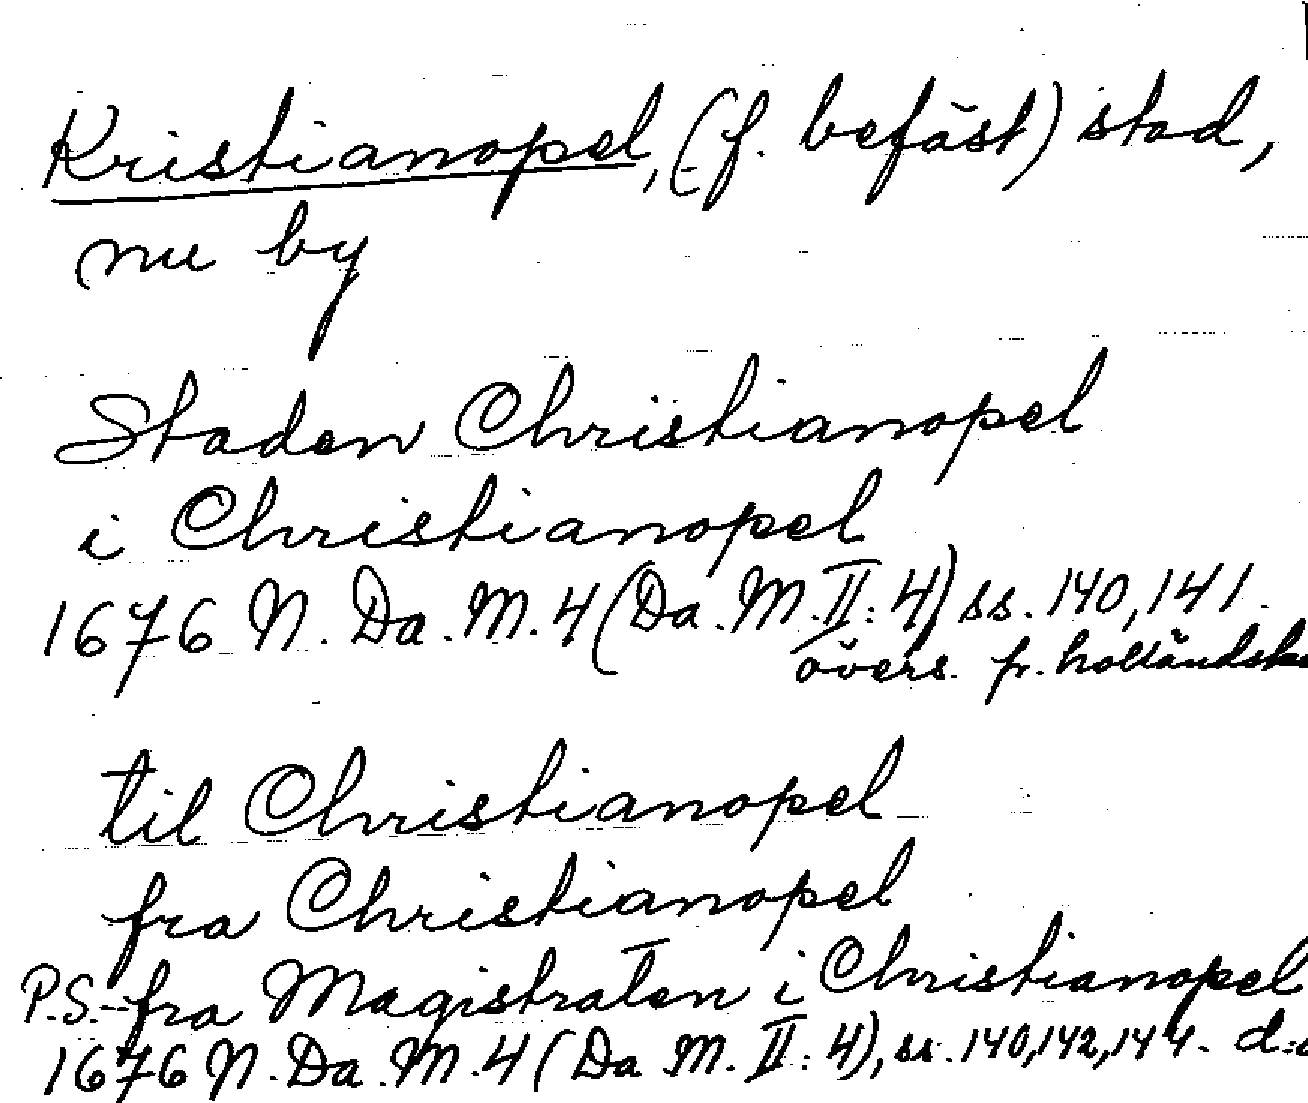 Kristianopel, (f. befäst) stad,
nu by
Staden Christianopel
i Christianopel
1676 N. Da. M. 4 (Da. M. II: 4) ss. 140, 141.
övers. fr. holländska
til Christianopel
fra Christianopel
P.S. fra Magistraten i Christianopel
1676 N. Da. M. 4 (Da. M. II: 4), ss. 140, 142, 144.